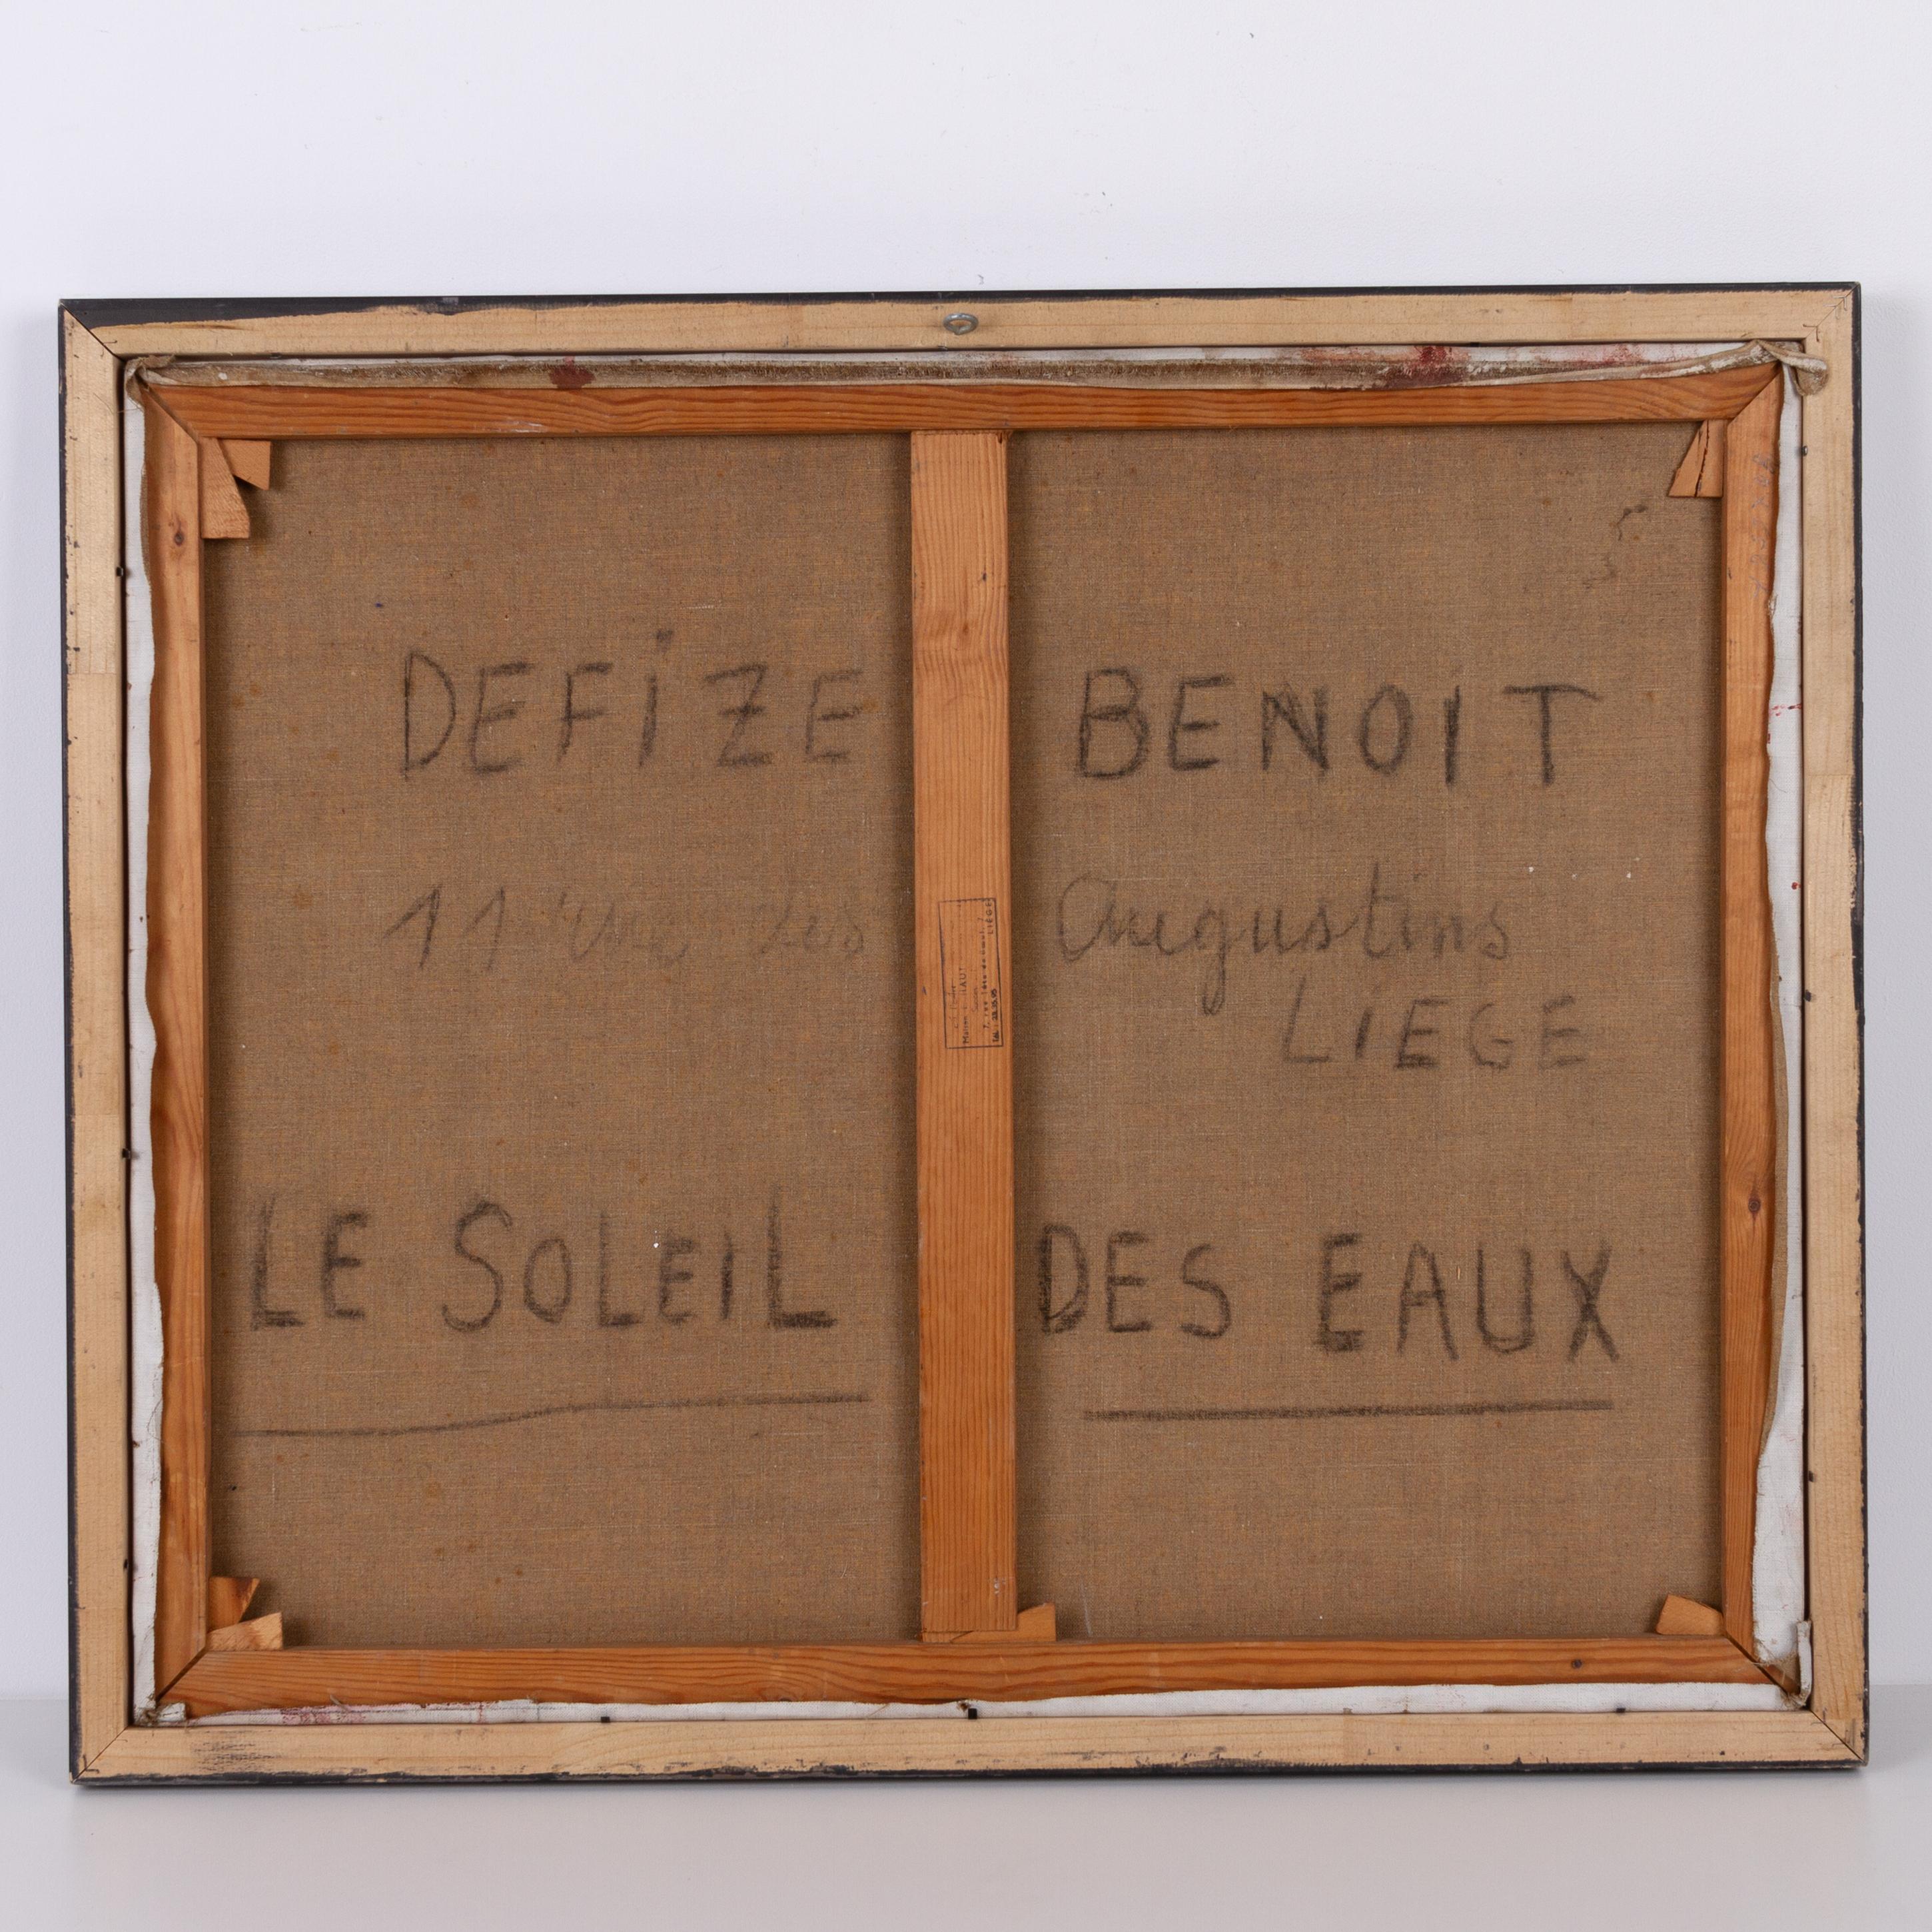 DEFIZE BENOIT
11 rue des Augustins
LIEGE
LE SOLEIL DES EAUX
LIÉGE